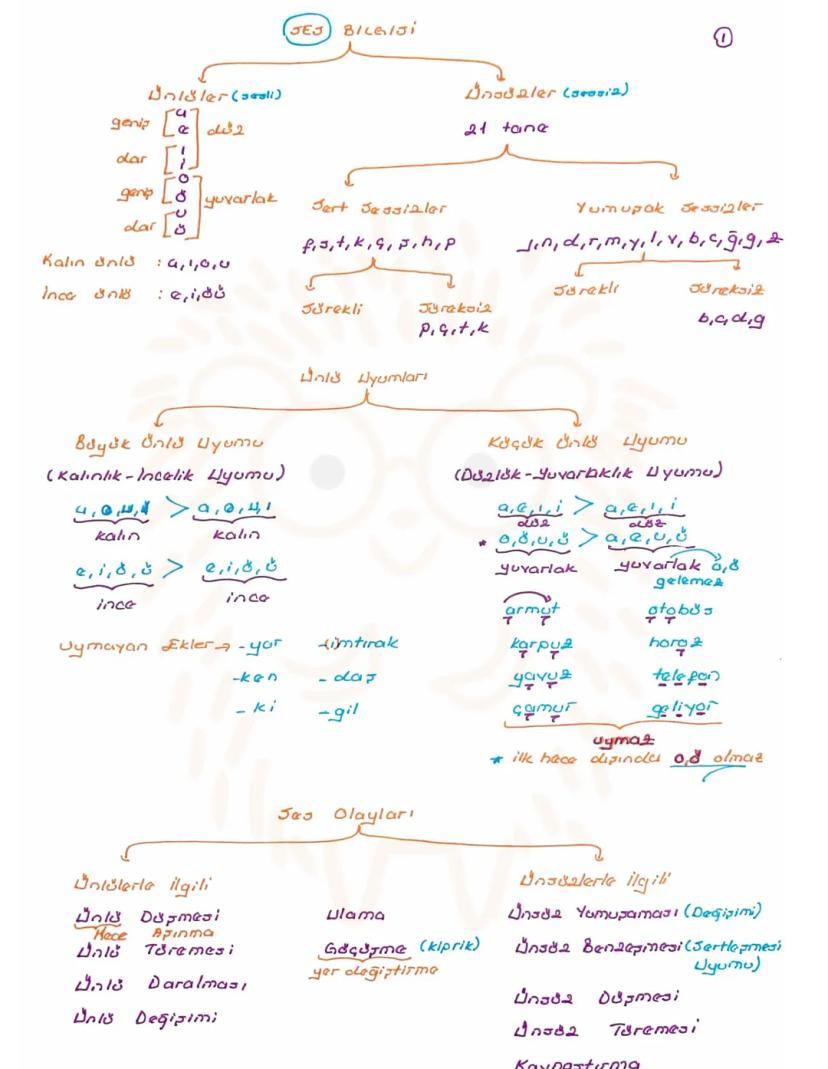 SES Bilgisi
1
Ünlüler (sesli)
Ünsüzler (sessiz)
geniş [a e] düz
21 tane
dar [ı i]
geniş [o ö] yuvarlak
dar [u ü]
Sert Sessizler
Yumuşak Sessizler
f,s,t,k,ç,ş,h,p
j,n,d,r,m,y,l,v,b,c,ğ,g,z
Kalın ünlü : a,ı,o,u
İnce ünlü : e,i,öü
Sürekli
Süreksiz
p,ç,t,k
Sürekli
Süreksiz
b,c,d,g
Ünlü Uyumları
Büyük Ünlü Uyumu
(Kalınlık-İncelik Uyumu)
a,o,u,ı > a,o,u,ı
kalın kalın
e,i,ö,ü > e,i,ö,ü
ince ince
Uymayan Ekler → -yor -imtırak
-ken -daş
-ki -gil
Küçük Ünlü Uyumu
(Düzlük-Yuvarlaklık Uyumu)
a,e,ı,i > a,e,ı,i
düz düz
* o,ö,u,ü > a,e,u,ü
yuvarlak yuvarlak o,ö
gelemez
armut otobüs
karpuz horoz
yavuz telefon
çamur geliyor
uymaz
* ilk hece dışında o,ö olmaz
Ses Olayları
Ünlülerle ilgili
Ünlü Düşmesi
Hece Aşınma
Ünlü Türemesi
Ünlü Daralması
Ünlü Değişimi
Ulama
Göçüşme (kiprik)
yer değiştirme
Ünsüzlerle ilgili
Ünsüz Yumuşaması (Değişimi)
Ünsüz Benzeşmesi (Sertleşmesi
Uyumu)
Ünsüz Düşmesi
Ünsüz Türemesi
Kaynaştırma